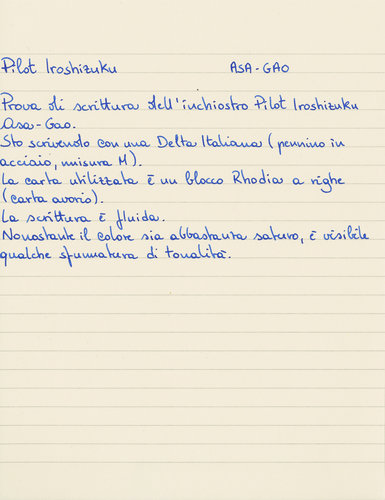 Pilot Iroshizuku ASA-GAO
Prova di scrittura dell'inchiostro Pilot Iroshizuku
Asa-Gao.
Sto scrivendo con una Delta Italiana (pennino in
acciaio, misura M).
La carta utilizzata è un blocco Rhodia a righe
(carta avorio).
La scrittura è fluida.
Nonostante il colore sia abbastanza saturo, è visibile
qualche sfumatura di tonalità.